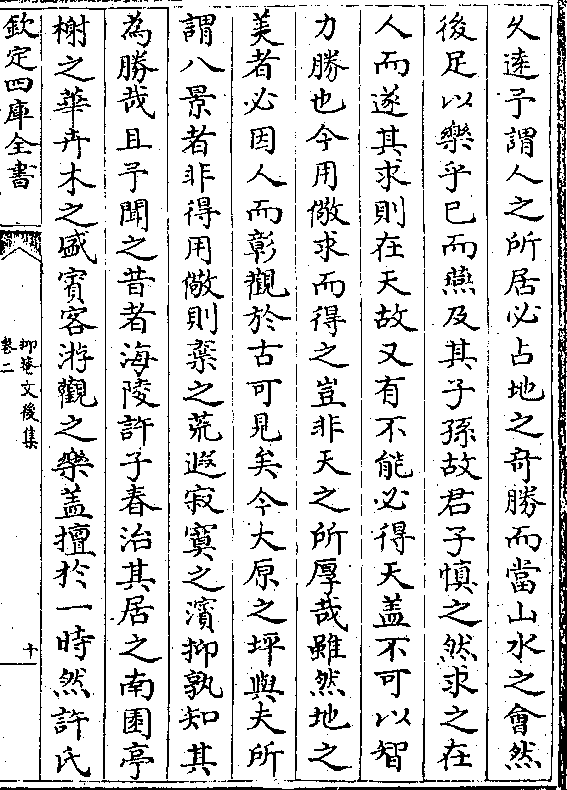 久逺予謂人之所居必占地之奇勝而當山水之會然
後足以樂乎已而燕及其子孫故君子慎之然求之在
人而遂其求則在天故又有不能必得天盖不可以智
力勝也今用儆求而得之豈非天之所厚哉雖然地之
美者必因人而彰觀於古可見矣今大原之坪與夫所
謂八景者非得用儆則棄之荒遐寂寞之濱抑孰知其
為勝哉且予聞之昔者海陵許子春治其居之南園亭
榭之華卉木之盛賓客游觀之樂盖擅於一時然許氏
欽定四庫全書
抑菴文後集
卷二
十